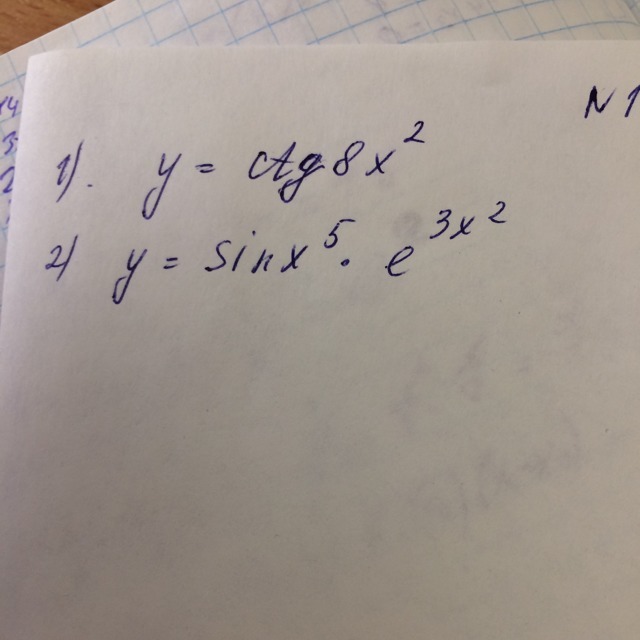 N 1
1). y = ctg 8x²
2) y = sin x⁵ · e^{3x²}